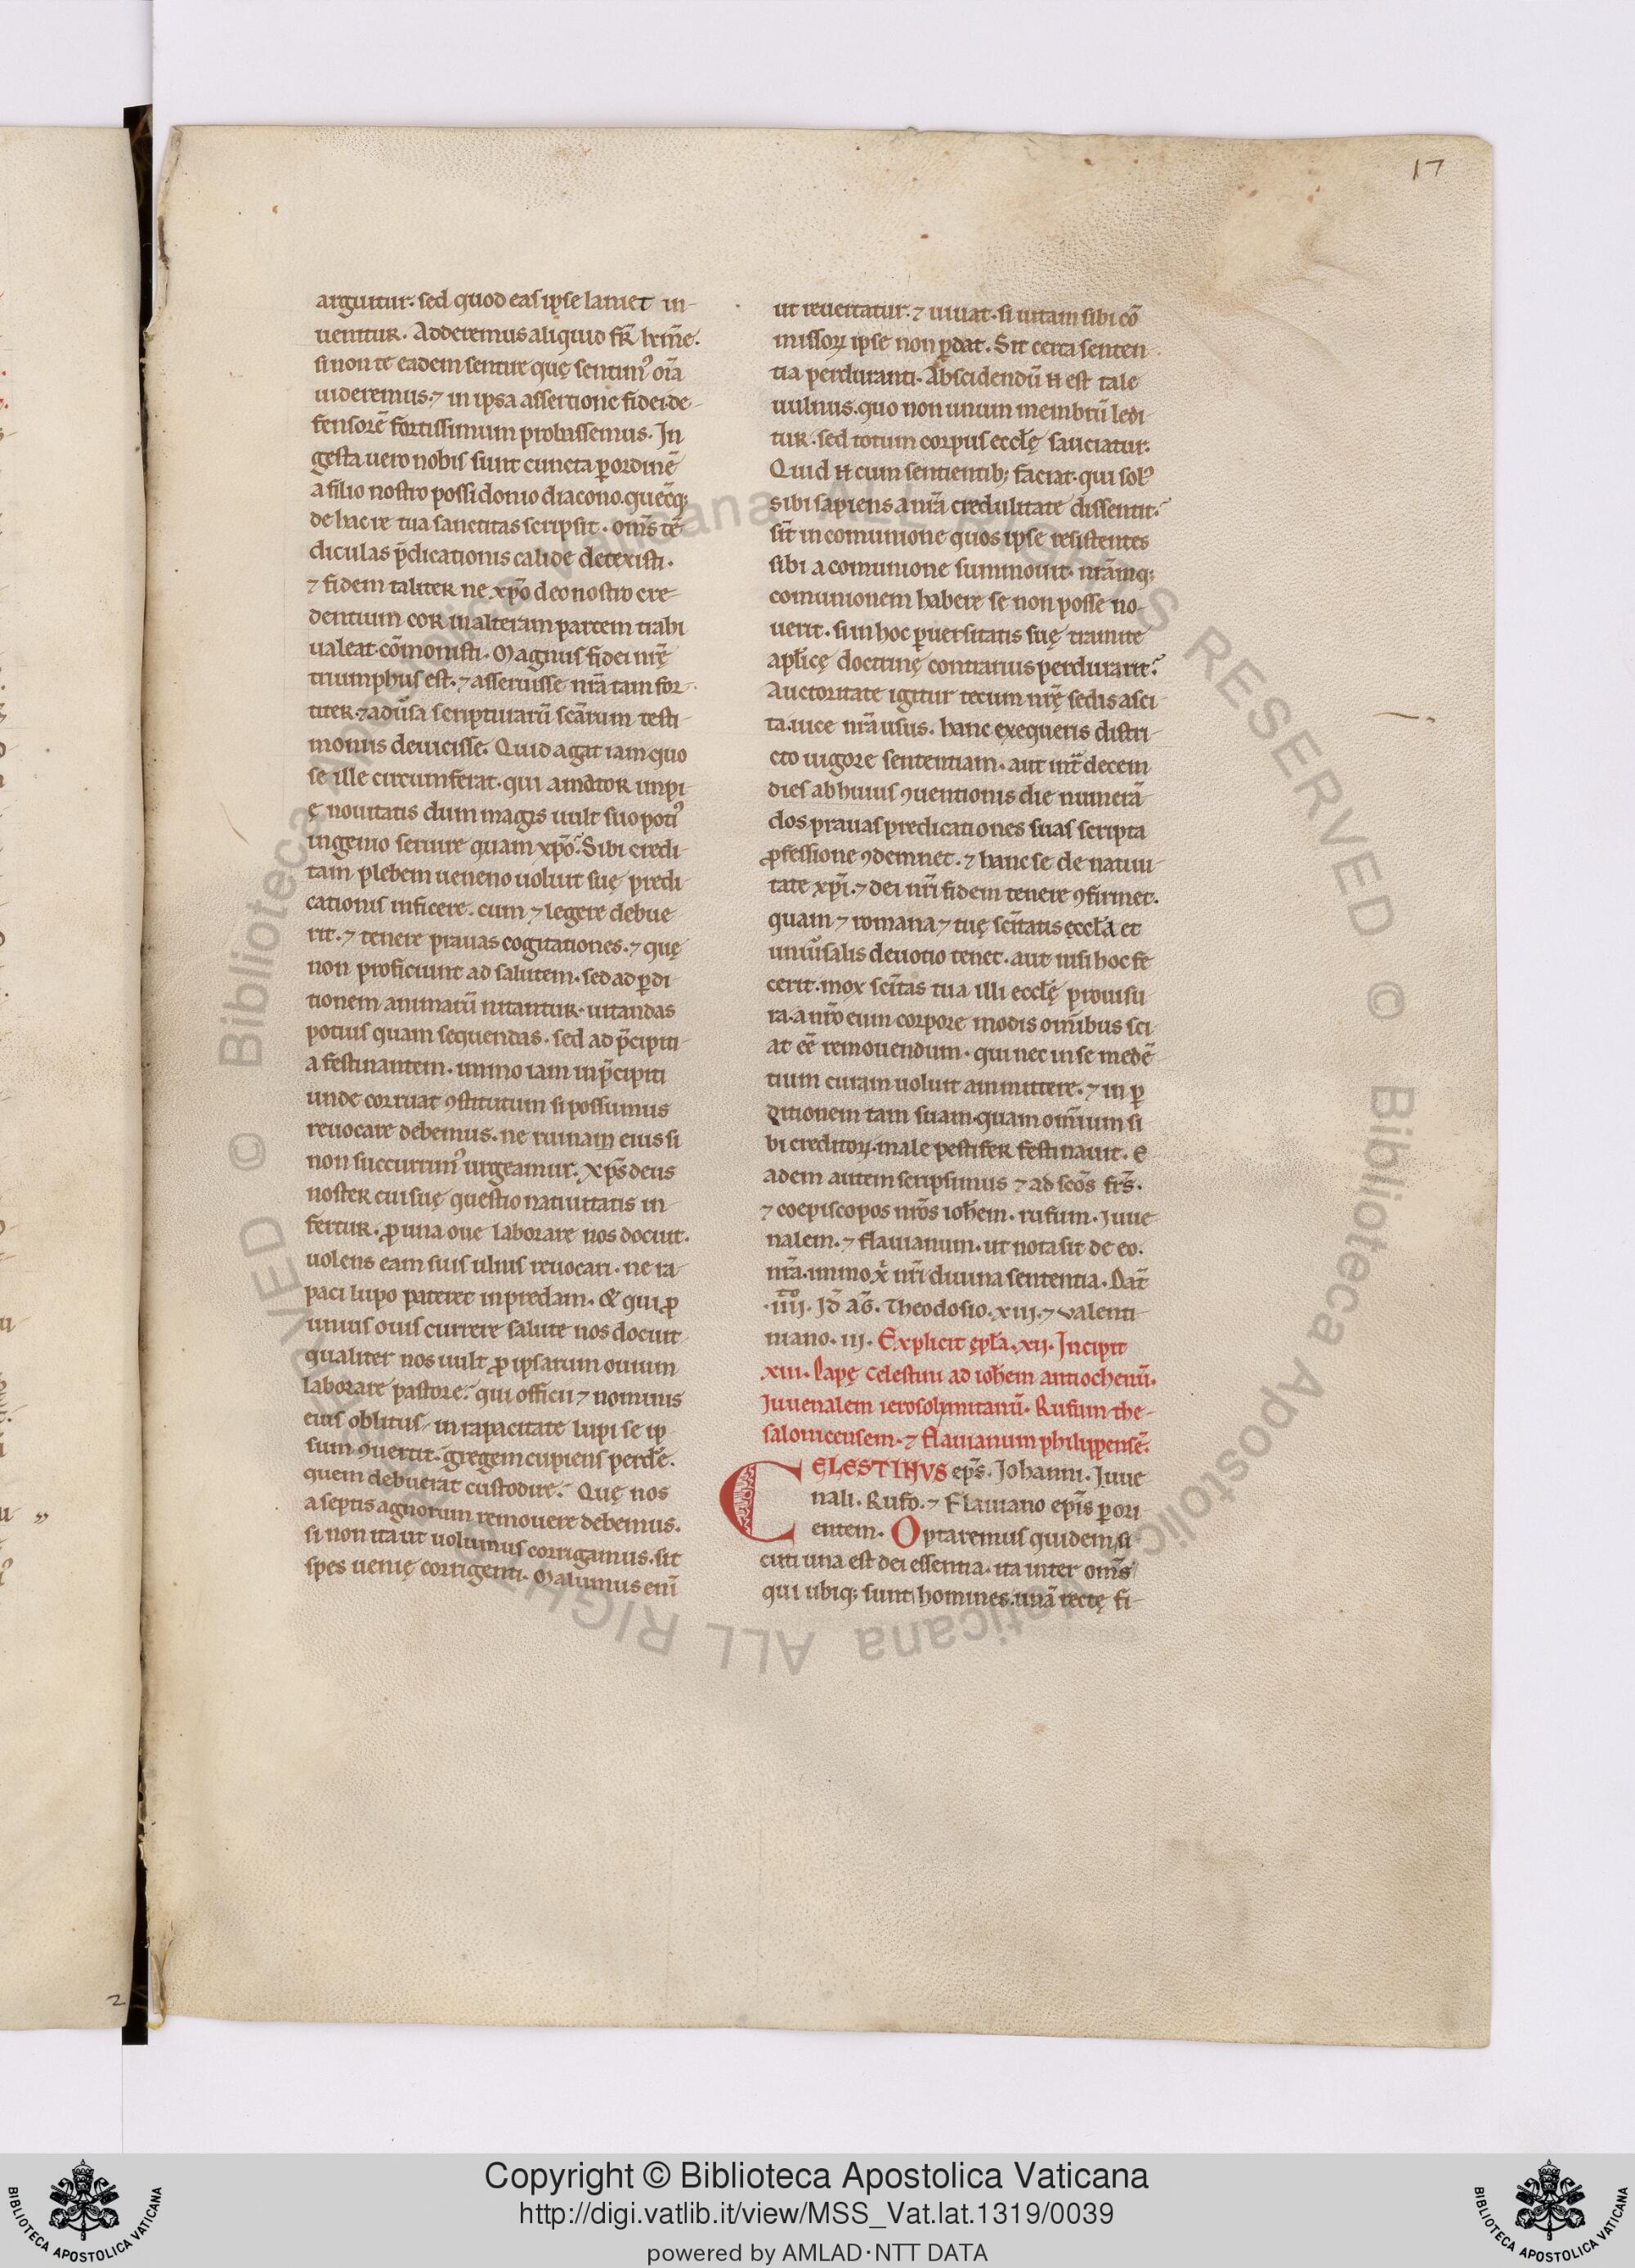 17
arguitur. sed quod eas ipse laniet in-
uenitur. Adderemus aliquid fr̃ kr̃me.
si non te eadem sentire quę sentim᾿ oĩa
uideremus. ⁊ in ipsa assertione fidei de-
fensorẽ fortissimum probassemus. In
gesta uero nobis sunt cuncta ꝑordinẽ
a filio nostro possidonio diacono. quecũq;
de hac re tua sanctitas scripsit. om̃s tẽ
diculas p̃dicationis calide detexisti.
⁊ fidem taliter ne xp̃o deo nostro cre
dentium cor in alteram partem trahi
ualeat cõmonisti. Magnus fidei nr̃ę
triumphus est. ⁊ asseruisse nr̃a tam for-
titer. ⁊ adũsa scripturarũ scãrum testi-
moniis deuicisse. Quid agat iam quo
se ille circumferat. qui amator impi
ę nouitatis dum magis uult suo poti᾿
ingenio seruire quam xp̃o. Sibi credi-
tam plebem ueneno uoluit suę predi-
cationis inficere. cum ⁊ legere debue
rit. ⁊ tenere prauas cogitationes. ⁊ quę
non proficiunt ad salutem. sed ad ꝑdi
tionem animarũ nitantur. uitandas
potius quam sequendas. sed ad p̃cipiti-
a festinantem. immo iam in p̃cipiti
unde corruat ꝯstitutum si possumus
reuocare debemus. ne ruinam eius si
non succurrim᾿ urgeamur. Xp̃s deus
noster cui suę questio natiuitatis in-
fertur. ꝓ una oue laborare nos docuit.
uolens eam suis ulnis reuocari. ne ra-
paci lupo pateret in predam. & qui ꝓ
unius ouis currere salute nos docuit
qualiter nos uult ꝓ ipsarum ouium
laborare pastore. qui officii ⁊ nominis
eius oblitus. in rapacitate lupi se ip
sum ꝯuertit. gregem cupiens perdẽ.
quem debuerat custodire. Quę nos
a septis agnorum remouere debemus.
si non ita ut uolumus corrigamus. sit
spes uenię corrigenti. Malumus enĩ
ut reuertatur. ⁊ uiuat. si uitam sibi cõ
missoꝝ ipse non ꝑdat. Sit certa senten
tia perduranti. Abscidendũ ñ est tale
uulnus. quo non unum membrũ ledi-
tur. sed totum corpus eccłę sauciatur.
Quid ñ cum sentientib; faciat. qui sol᾿
sibi sapiens a nr̃a credulitate dissentit.
sĩt in comunione quos ipse resistentes
sibi a comunione summouit. nr̃amq;
comunionem habere se non posse no-
uerit. si in hoc ꝑuersitatis suę tramite
apłicę doctrinę contrarius perdurarit.
Auctoritate igitur tecum nr̃ę sedis asci-
ta. uice nr̃a usus. hanc exequeris distri-
cto uigore sententiam. aut int̃ decem
dies ab huius ꝯuentionis die numerã
dos prauas predicationes suas scripta
ꝓfessione ꝯdemnet. ⁊ hanc se de natiui-
tate xp̃i. ⁊ dei nr̃i fidem tenere ꝯfirmet.
quam ⁊ romana ⁊ tuę scĩtatis ęccła et
uniũsalis deuotio tenet. aut nisi hoc fe
cerit. mox scĩtas tua illi eccłę prouisu
ra. a nr̃o eum corpore modis om̃ibus sci
at eẽ remouendum. qui nec in se medẽ-
tium curam uoluit ammittere. ⁊ in ꝑ
ditionem tam suam. quam om̃ium si
bi creditoꝝ. male pestifer festinauit. e
adem autem scripsimus ⁊ ad scõs fr̃s.
⁊ coepiscopos nr̃os ioħem. rufum. Juue
nalem. ⁊ flauianum. ut nota sit de eo.
nr̃a. immo x̃ nr̃i diuina sententia. Dat̃
.iiij. Id̃ aũ. Theodosio. xiij. ⁊ Valenti
niano. iij. Explicit ępła. xij. Incipit
xiij. Papę Celestini ad ioħem antiochenũ.
Juuenalem ierosolimitanũ. Rufum the-
salonicensem. ⁊ flauianum philippensẽ.
CELESTINVS ep̃s. Johanni. Juue
nali. Rufo. ⁊ Flauiano ep̃is ꝑ ori
entem. Optaremus quidem si
cuti una est dei essentia. ita inter om̃s
qui ubiq; sunt homines. unã rectę fi-
2
© Biblioteca Apostolica Vaticana ALL RIGHTS RESERVED © Biblioteca Apostolica Vaticana ALL RIGHTS RESERVED
BIBLIOTECA APOSTOLICA VATICANA
Copyright © Biblioteca Apostolica Vaticana
http://digi.vatlib.it/view/MSS_Vat.lat.1319/0039
powered by AMLAD·NTT DATA
BIBLIOTECA APOSTOLICA VATICANA